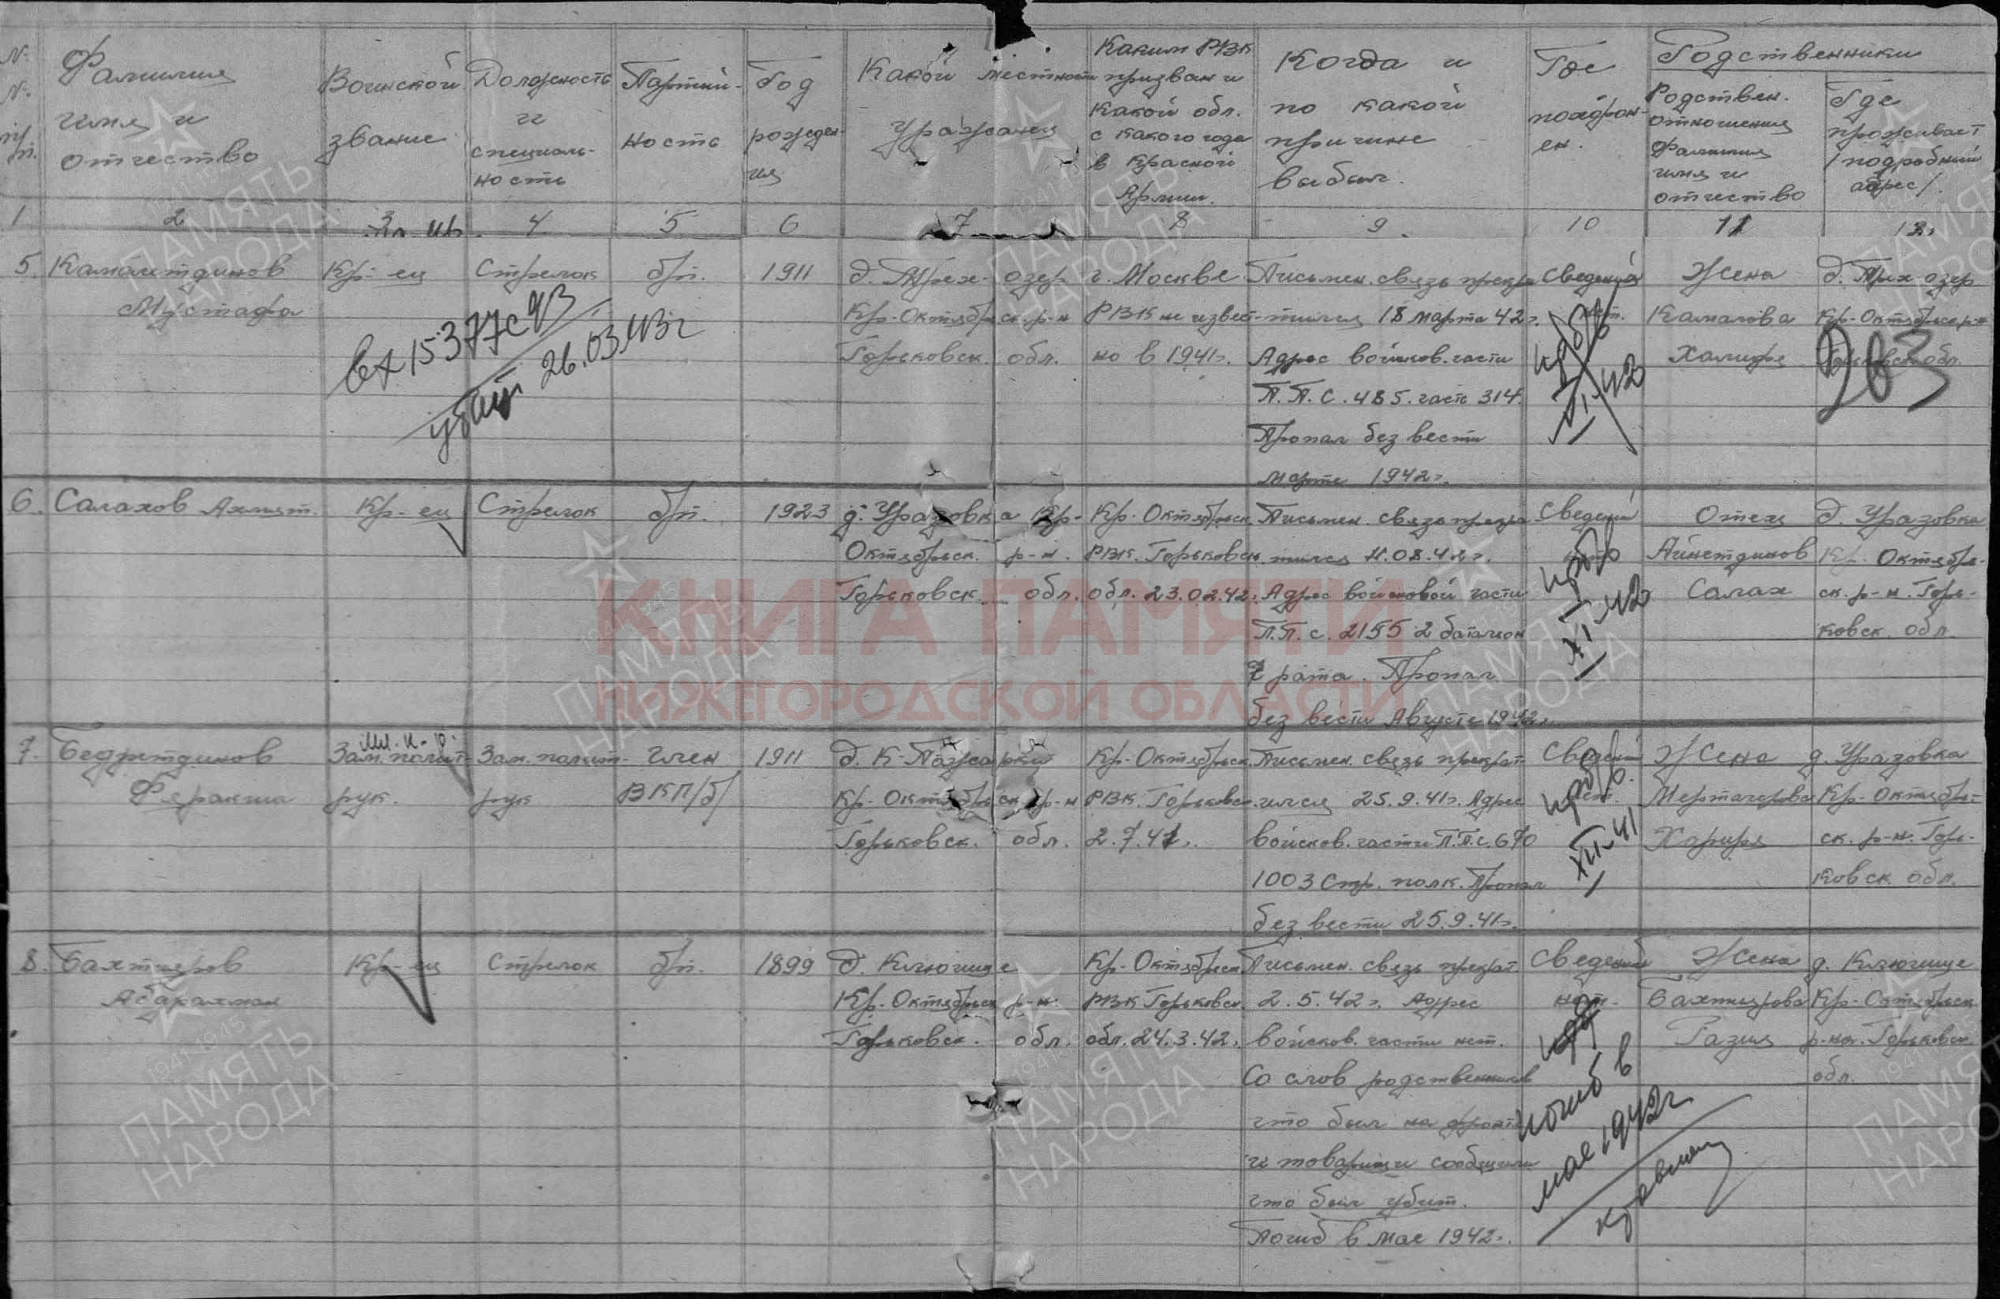 № № п/п.
Фамилия имя и отчество
Воинской звание
Должность и специаль-ность
Партий-ность
Год рожден-ия
Какой местности уроженец
Каким РВК призван и какой обл. с какого года в Красной Армии.
Когда и по какой причине выбыл.
Где похорон-ен.
Родственники
Родствен. отношения фамилия имя и отчество
Где проживает /подробный адрес/.
1 2 3 4 5 6 7 8 9. 10 11 12.
5. Камалетдинов Кр-ец Стрелок б/п. 1911 д. Трех-озер г. Москве Письмен. связь прекра Сведений Жена д. Трех озер
Мустафа Кр-Октябрьск. р-н РВК не извест- тился 18 марта 42г. нет. Камалова Кр-Октябрьс р-н
Горьковск. обл. но в 1941г. Адрес войсков. части Халифя Горьковск обл.
П.П.С. 485. часть 314.
Пропал без вести
марте 1942г.
вх 15377с 43
убит 26.03.43г
XI-42
203
6. Салахов Ахмет. Кр-ец Стрелок б/п. 1923 д. Уразовка Кр- Кр. Октябрьск Письмен. связь прекра Сведений Отец д. Уразовка
Октябрьск. р-н. РВК. Горьковск тился 11.08.42г. нет Айнетдинов Кр. Октябрь-
Горьковск. обл. обл. 23.02.42г. Адрес войсковой части Салах ск. р-н. Горь-
П.П.С. 2155 2 батальон ковск. обл.
7 рота. Пропал
без вести Августе 1942г.
XI-42
7. Бедретдинов Зам. полит- Зам. полит- член 1911 д. К-Пожарки Кр-Октябрьск. Письмен. связь прекрат Сведений Жена д. Уразовка
рук. рук ВКП/б/ Кр-Октябрьск р-н РВК. Горьковск. ился 25.9.41г. Адрес нет. Кр-Октябрь-
Горьковск. обл. 2.7.41г. войсков. части П.П.С. 670 ск. р-н. Горь-
1003 Стр. полк. Пропал ковск обл.
без вести 25.9.41г.
XII-41
8. Бахтияров Кр-ец Стрелок б/п. 1899 д. Ключище Кр-Октябрьск Письмен. связь прекрат. Сведений Жена д. Ключище
Абдрахман Кр. Октябрьск р-н. РВК Горьковск. 2.5.42г. Адрес нет. Бахтиярова Кр-Октябрьск
Горьковск. обл. обл. 24.3.42. войсков. части нет. Разия р-на. Горьковск.
Со слов родственников обл.
что был на фронте
и товарищи сообщили
что был убит.
Погиб в мае 1942г.
погиб в
мае 1942г
КНИГА ПАМЯТИ
НИЖЕГОРОДСКОЙ ОБЛАСТИ
ПАМЯТЬ НАРОДА
1941-1945